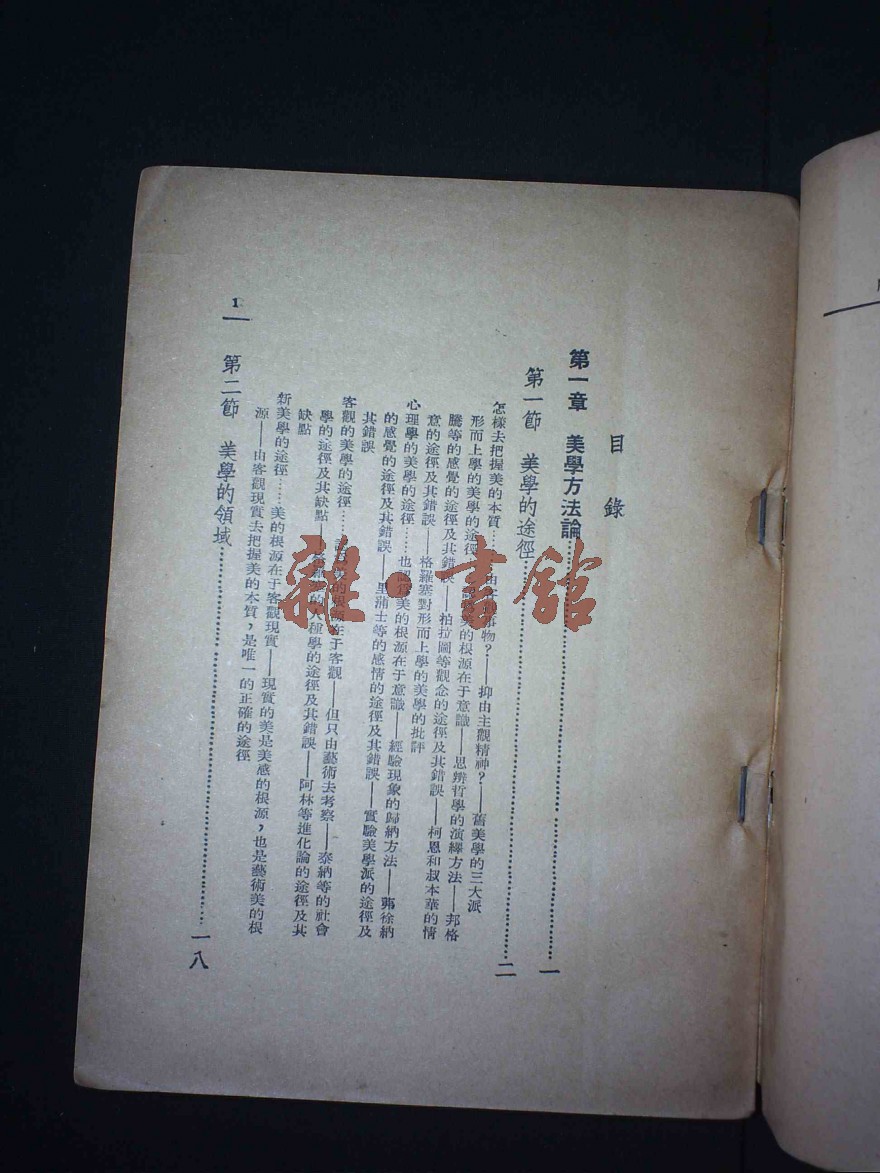 目錄
第一章　美學方法論……一
第一節　美學的途徑……二
怎樣去把握美的本質……由客觀事物？——抑由主觀精神？——舊美學的三大派
形而上學的美學的途徑……認爲美的根源在于意識——思辨哲學的演繹方法——邦格
騰等的感覺的途徑及其錯誤——柏拉圖等觀念的途徑及其錯誤——柯恩和叔本華的情
意的途徑及其錯誤——格羅塞對形而上學的美學的批評
心理學的美學的途徑……也認爲美的根源在于意識——經驗現象的歸納方法——鄭徐納
的感覺的途徑及其錯誤——里蒲士等的感情的途徑及其錯誤——實驗美學派的途徑及
其錯誤
客觀的美學的途徑……美的根源在于客觀——但只由藝術去考察——泰納等的社會
學的途徑及其缺點——格羅塞的人種學的途徑及其錯誤——阿林等進化論的途徑及其
缺點
新美學的途徑……美的根源在于客觀現實——現實的美是美感的根源，也是藝術美的根
源——由客觀現實去把握美的本質，是唯一的正確的途徑
第二節　美學的領域……一八
1
雜·書館